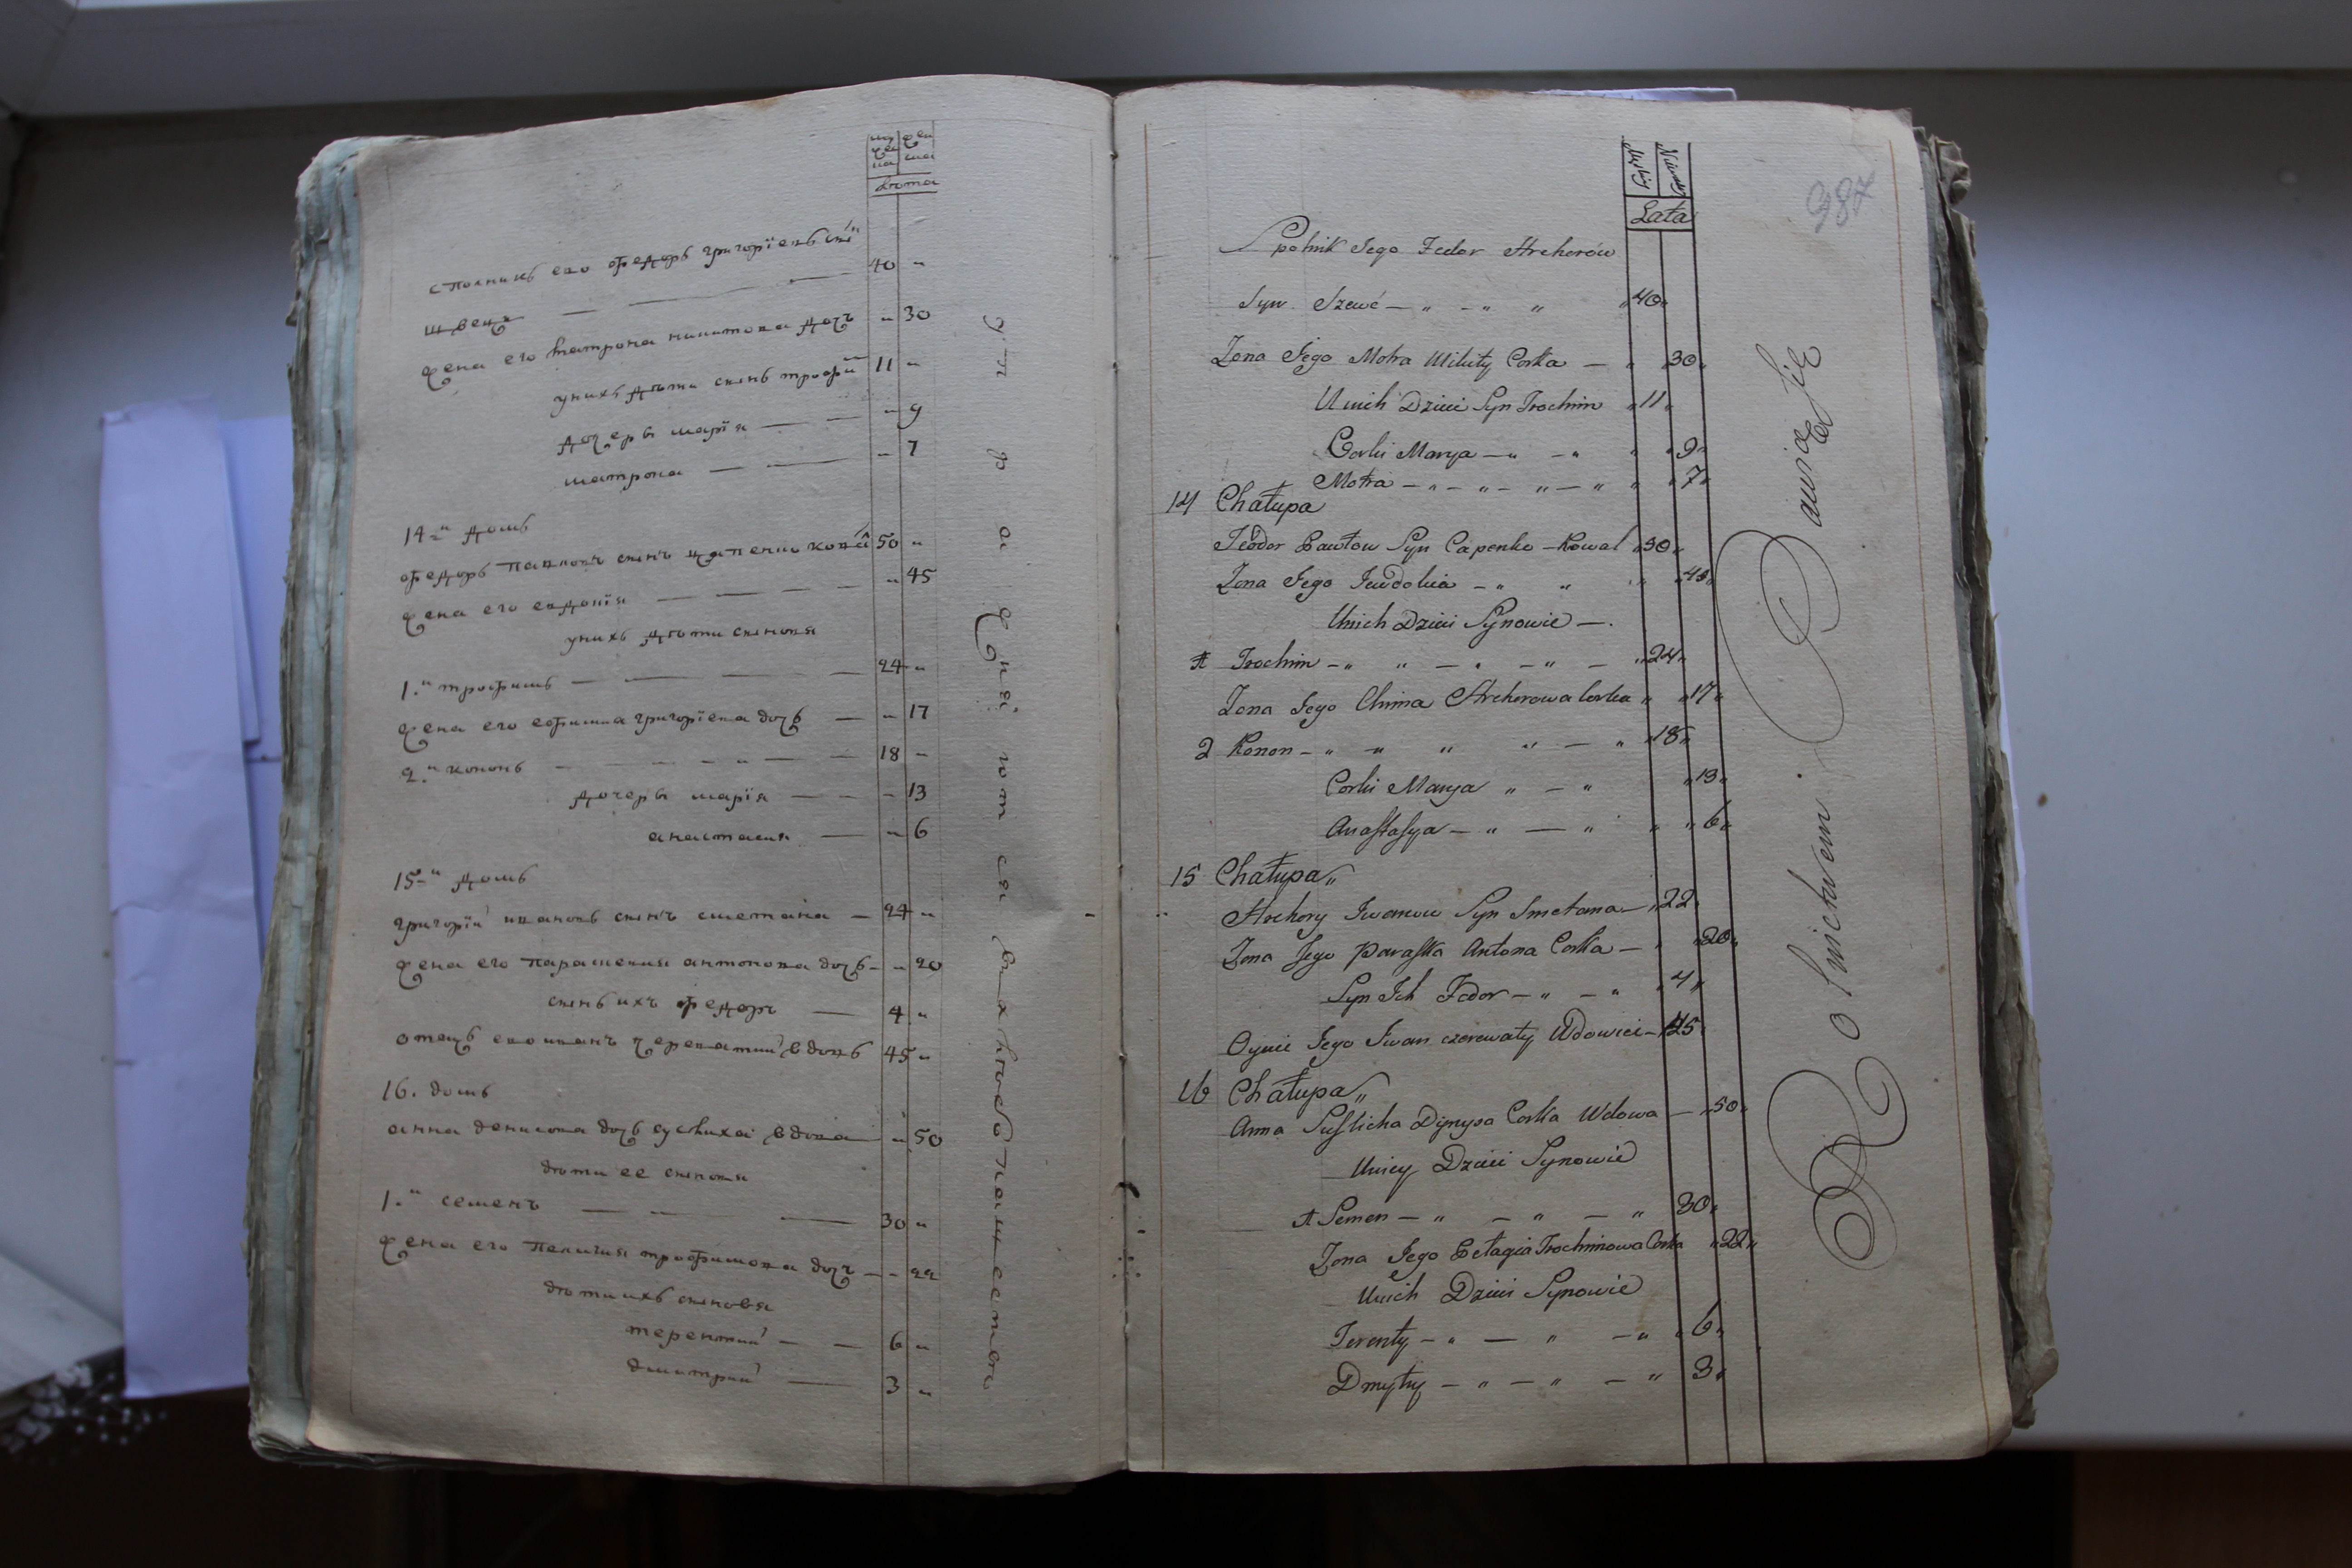 лѣта
сполникъ его федоръ григоріевъ снъ
швецъ — — — 40 „
жена его матрона никитова дочъ „ 30
унихъ дѣти синъ трофи 11 „
дочеры марія — — „ 9
матрона — — „ 7
14й домъ
федоръ павловъ синъ цапенко ковал 50 „
жена его евдокія — — — — „ 45
унихъ дѣти синовя
1.й трофимъ — — — — 24 „
жена его ефимия григоріева дочъ — „ 17
2.й кононъ — — — „ — — 18 „
дочеры марія — — „ 13
анастасия — „ 6
15й домъ
григорій ивановъ синъ сметана — 24 „
жена его параскевия антонова дочъ — „ 20
синъ ихъ федоръ — 4 „
отецъ его иванъ череватий вдовъ 45 „
16. домъ
анна денисова дочъ вдова — „ 50
дѣти ее синовя
1.й семенъ — — — 30 „
жена его пелагия трофимова дочъ — „ 22
дѣти ихъ синовя
терентий — — 6 „
димитрий — 3 „
987
Lata
Spolnik Jego Fedor Hrehorów
Syn Szewc — „ — „ „ „ 40 „
Zona Jego Motra Mikity Corka — „ „ 30 „
Unich Dzieci Syn Trochim „ 11 „
Corki Marya — „ — „ „ „ 9 „
Motra — „ — „ — „ — „ „ „ 7 „
14 Chałupa
Teodor Pawłow Syn Capenko — Kowal „ 50 „
Zona Jego Jewdokia — „ „ „ 45 „
Unich Dzieci Synowie — .
1 Trochim — „ „ — „ — „ — „ 24 „
Zona Jego Chima Hrehorowa Corka „ „ 17 „
2 Konon — „ „ „ „ — „ „ 18 „
Corki Marya „ — „ „ 13 „
Anastasya — „ — „ „ „ 6 „
15 Chałupa „
Hrehory Iwanow Syn Smetana — „ 22 „
Zona Jego Paraska Antona Corka — „ „ 20 „
Syn Ich Fedor — „ — „ „ 4 „
Oyciec Jego Iwan czerewaty Wdowiec — „ 45 „
16 Chałupa „
Anna Suslicha Dynysa Corka Wdowa — „ 50 „
Uniey Dzieci Synowie
1 Semen — „ — „ — „ 30 „
Zona Jego Pelagia Trochimowa Corka „ 22 „
Unich Dzieci Synowie
Terenty — „ — „ — „ „ 6 „
Dmytry — „ — „ — „ 3 „